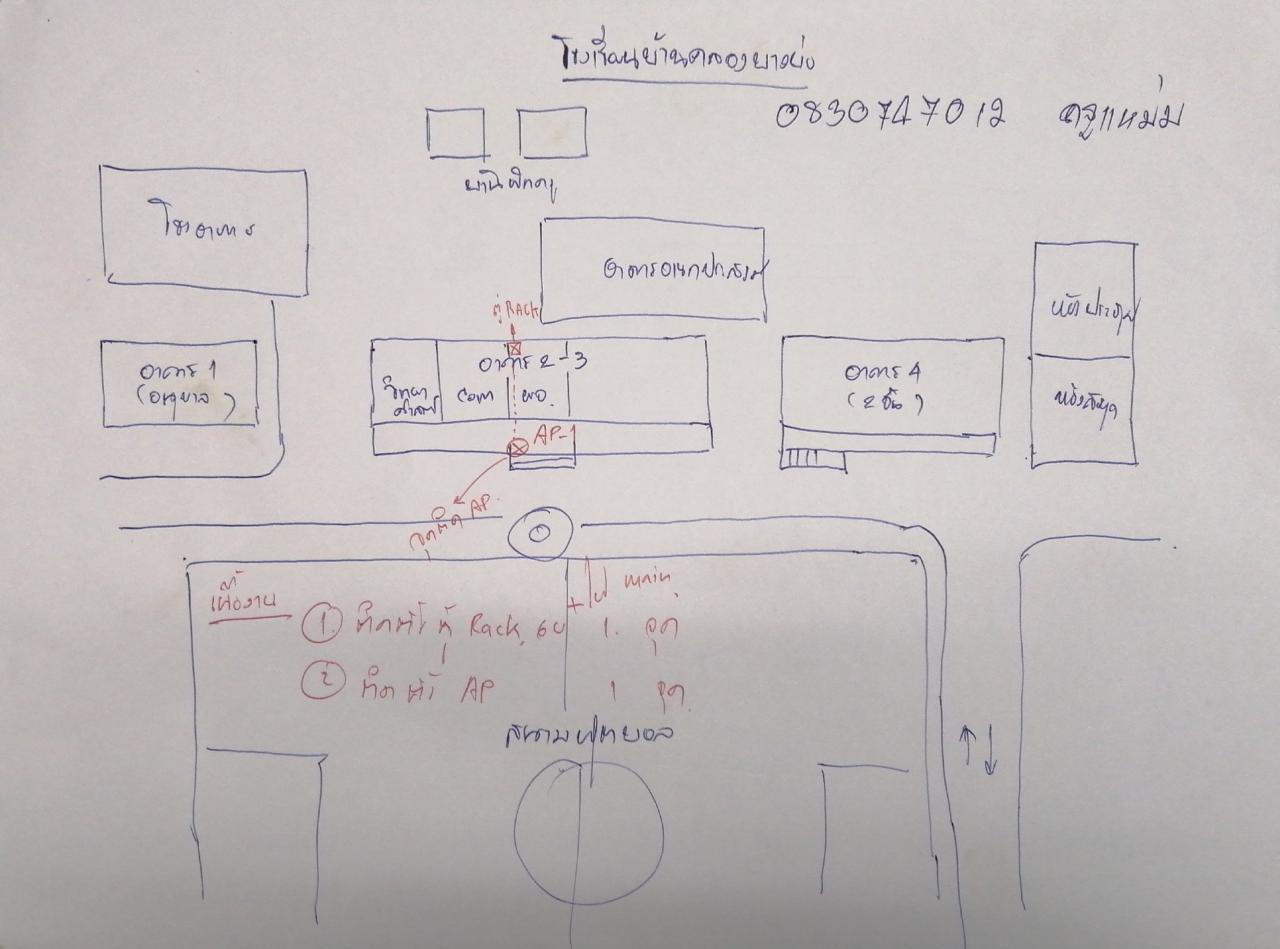 โรงเรียนบ้านคลองยาวย่ง
0830747012 ครูแหม่ม
บ้านพักครู
โรงอาหาร
อาคารอเนกประสงค์
ตู้ RACK
อาคาร 1
(อนุบาล)
อาคาร 2-3
วิทยา
ศาสตร์
com
ผอ.
AP-1
อาคาร 4
(2 ชั้น)
ห้องสมุด
จุดติด AP.
เนื้องาน
main
① ติดตั้ง ตู้ Rack 6U + 1. จุด
② ติดตั้ง AP 1 จุด
สนามฟุตบอล